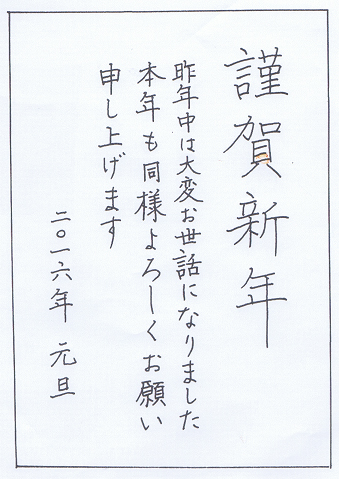 謹賀新年
昨年中は大変お世話になりました
本年も同様よろしくお願い
申し上げます
二〇一六年 元旦